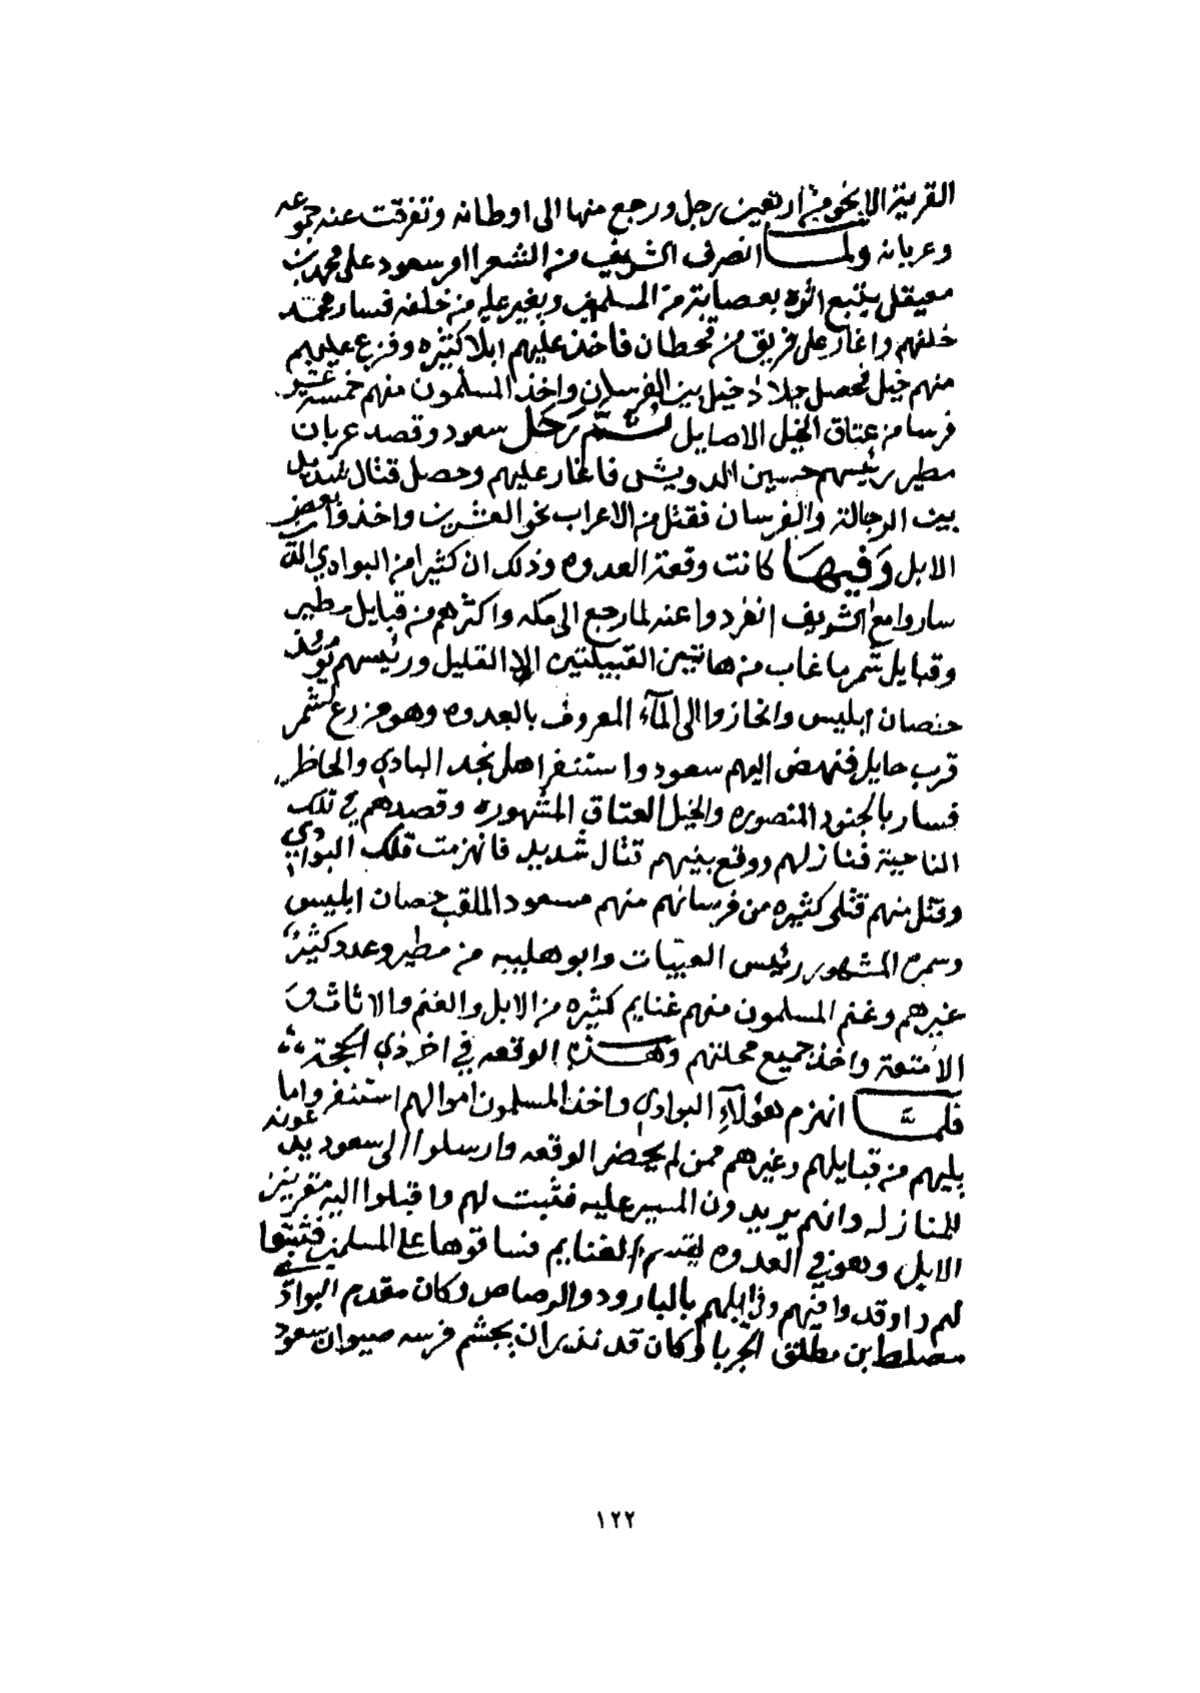 القرية الا نحو من اربعين رجل ورجع منها الى اوطانه وتفرقت عنه جموعه
وعربانه ولما انصرف الشريف من الشعرا امر سعود على محمد بن
معيقل يتبع اثره بعصابة من المسلمين ويغير عليه من خلفه فسار محمد
خلفهم واغار على فريق من قحطان فاخذ عليهم ابلا كثيره وفزع عليهم
منهم خيل فحصل جلاد خيل بين الفرسان واخذ المسلمون منهم خمسة عشر
فرسا من عتاق الخيل الاصايل ثم رحل سعود وقصد عربان
مطير رئيسهم حسين الدويش فاغار عليهم وحصل قتال شديد
بين الرجالة والفرسان فقتل من الاعراب نحو العشرين واخذوا بعض
الابل وفيها كانت وقعة العدوه وذلك ان كثيرا من البوادي الذي
ساروا مع الشريف انفردوا عنه لما رجع الى مكه واكثرهم من قبايل مطير
وقبايل شمر ما غاب من هاتين القبيلتين الا القليل ورئيسهم يومئذ
حصان ابليس وانحازوا الى المآء المعروف بالعدوه وهو مزرع لشمر
قرب حايل فنهض اليهم سعود واستنفر اهل نجد البادي والحاظر
فسار بالجنود المنصوره والخيل العتاق المشهوره وقصدهم في تلك
الناحية فنازلهم ووقع بينهم قتال شديد فانهزمت تلك البوادي
وقتل منهم قتلى كثيره من فرسانهم منهم مسعود الملقب حصان ابليس
وسمره المشهور رئيس العبيات وابو هليبه من مطير وعدد كثير
غيرهم وغنم المسلمون منهم غنايم كثيره من الابل والغنم والاثاث و
الامتعة واخذ جميع محلتهم وهذه الوقعه في اخر ذي الحجة
فلما انهزم هؤلآء البوادي واخذ المسلمون اموالهم استنفروا ما
يليهم من قبايلهم وغيرهم ممن لم يحضر الوقعه وارسلوا الى سعود يدعونه
للمنازله وانهم يريدون المسير عليه فثبت لهم واقبلوا اليه مقرنين
الابل وهو في العدوه يقسم الغنايم فساقوها على المسلمين فثبتوا
لهم واوقدوا فيهم وفي ابلهم بالبارود والرصاص وكان مقدم البوادي
مصلط بن مطلق الجربا وكان قد نذر ان يجشم فرسه صيوان سعود
١٢٢